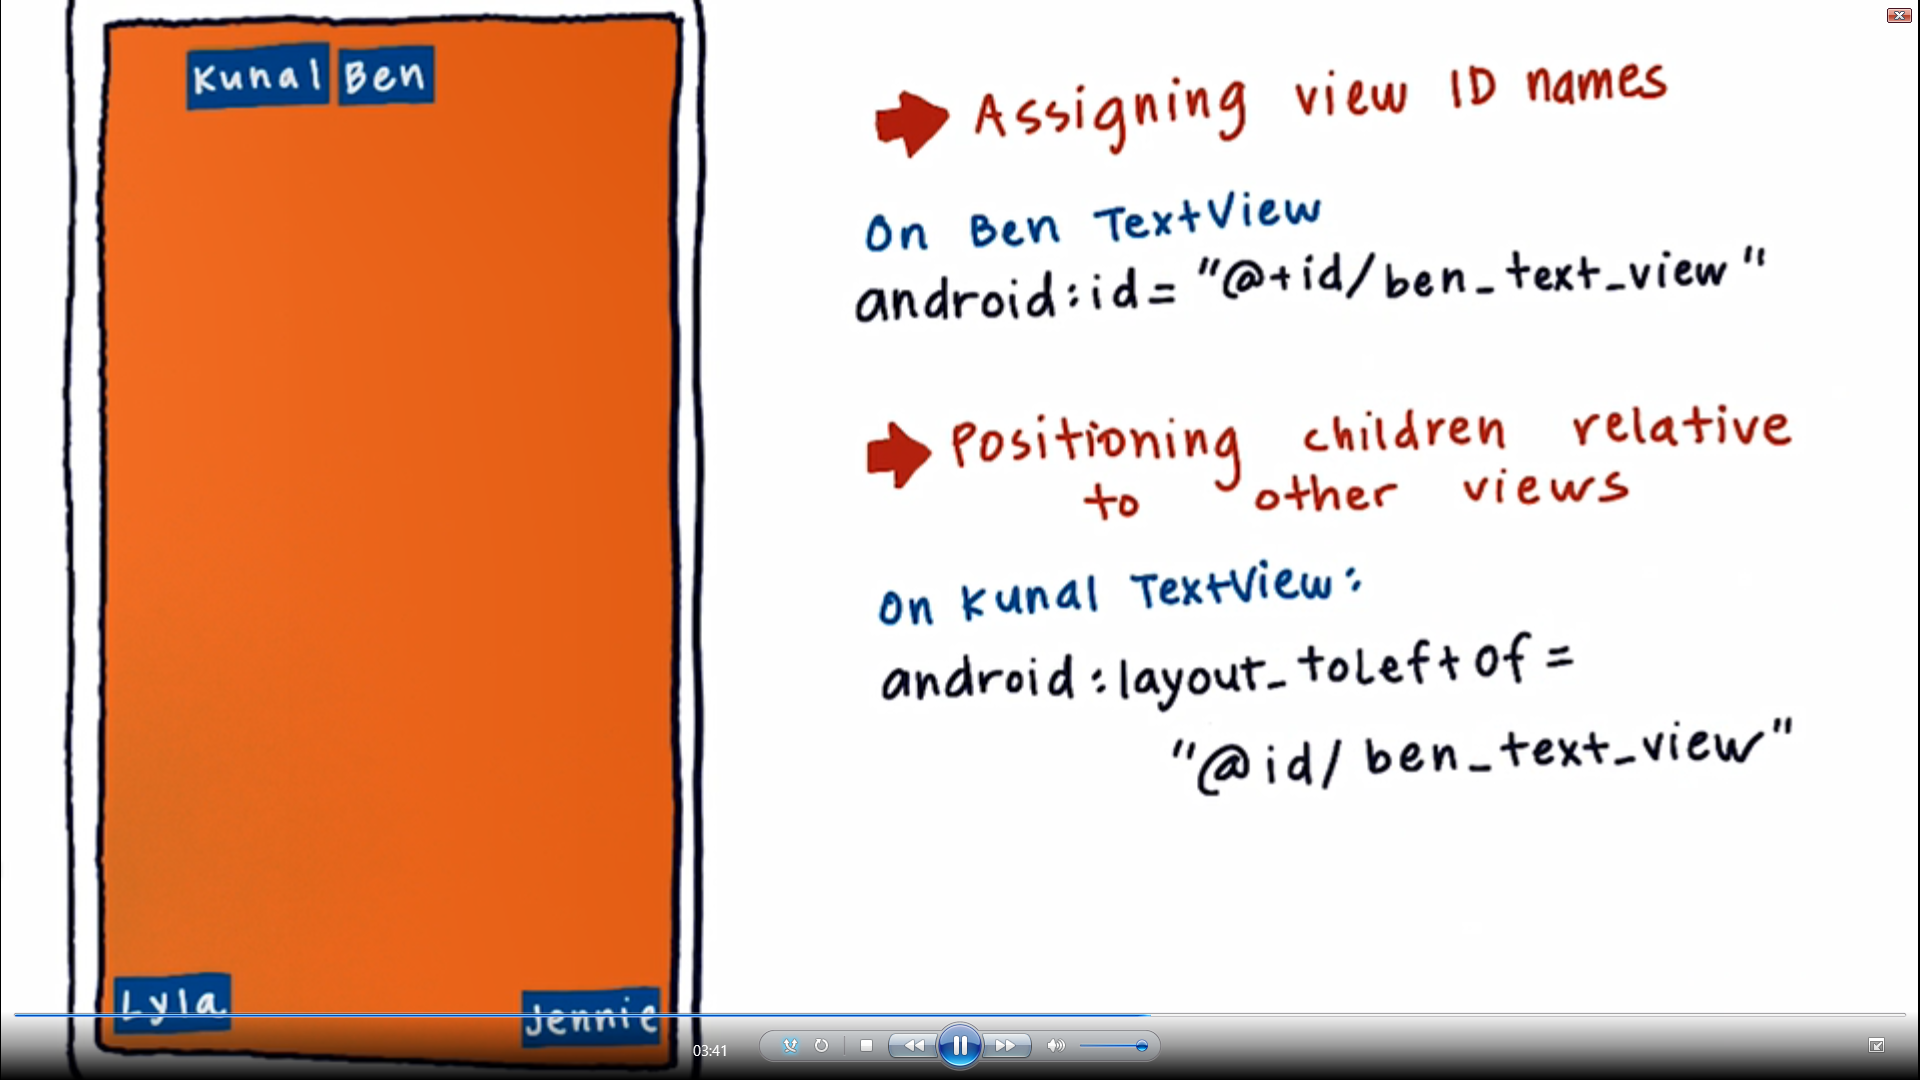 Kunal Ben
Assigning view ID names
On Ben TextView
android:id= "@+id/ben_text_view"
Positioning children relative
to other views
On Kunal TextView:
android:layout_toLeftOf=
"@id/ben_text_view"
Lyla
Jennie
03:41